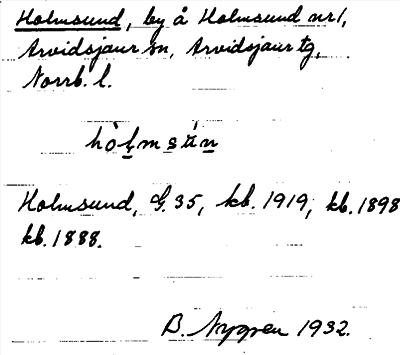 Holmsund, by å Holmsund nr 1,
Arvidsjaur sn, Arvidsjaur tg,
Norrb. l.
Holmsund, G. 35, kb. 1919, kb. 1898
kb. 1888.
B. Nygren 1932.